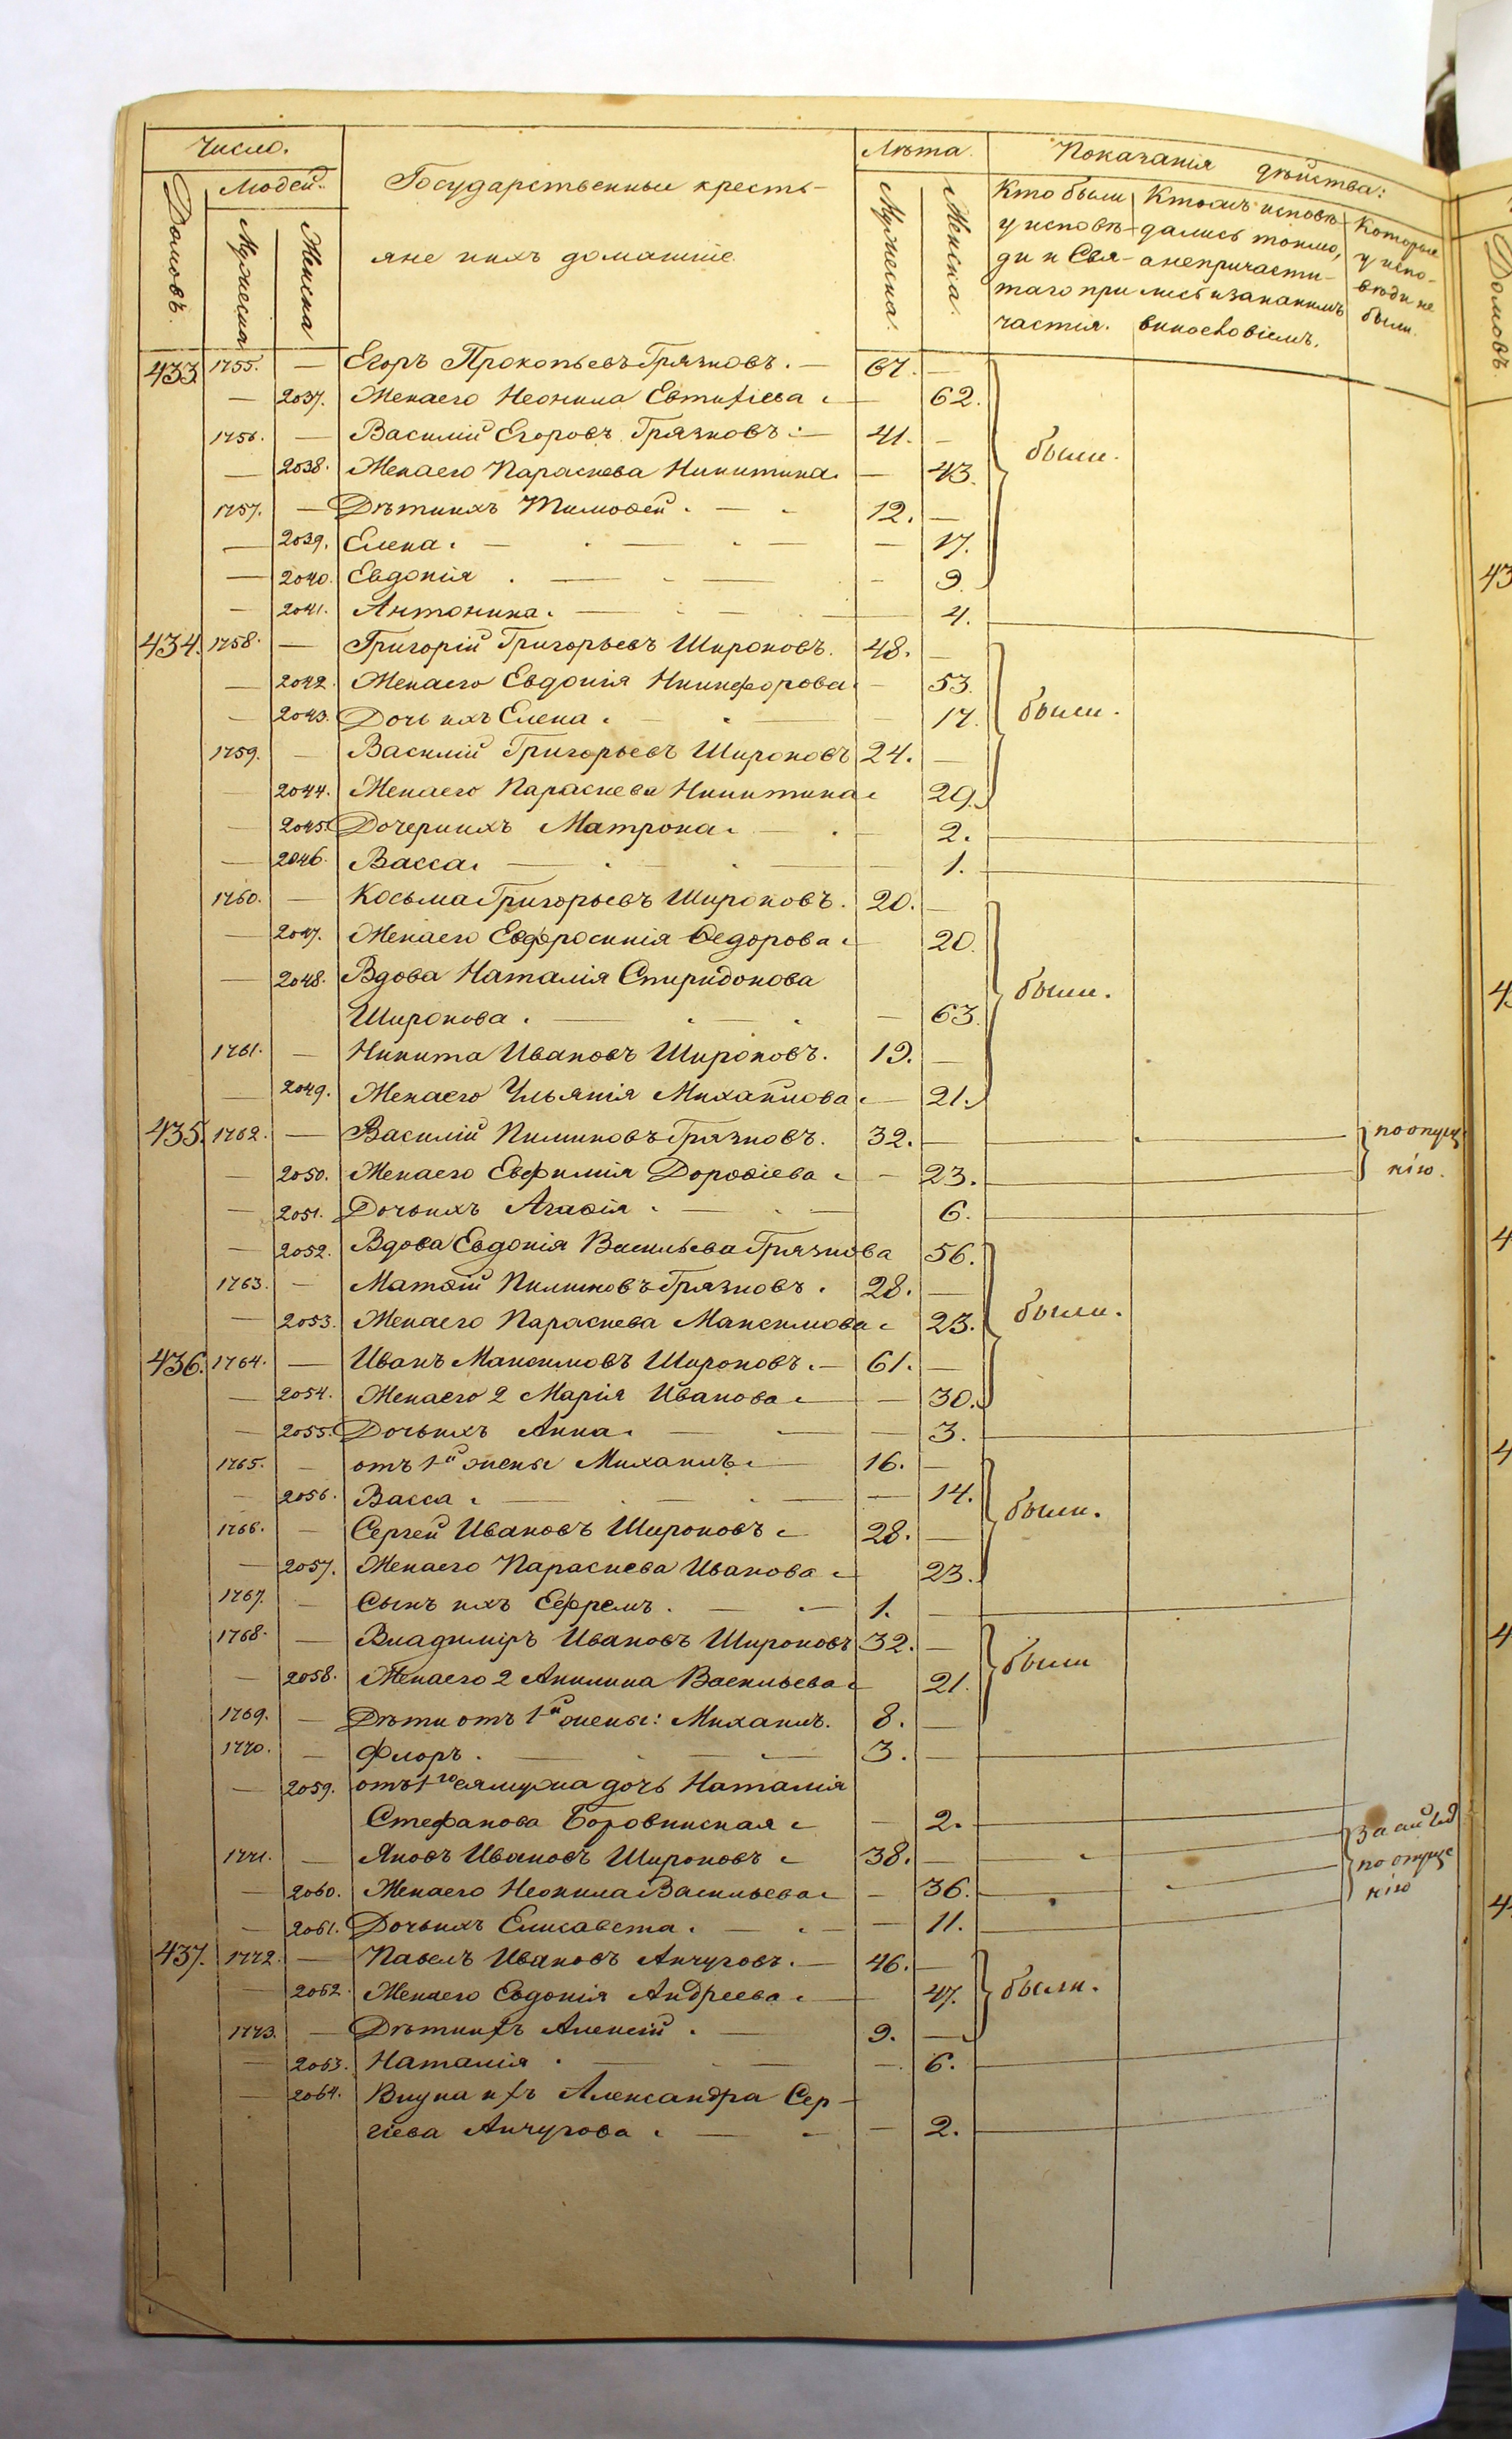 Число. Лѣта. Показанія дѣйства:
Домовъ. Людей. Государственные кресть-
Мужеска Женска яне ихъ домашніе Мужеска. Женска.
Кто были у исповѣди и Святаго причастія.
Кто изъ исповѣдались токмо, а непричастились и за какимъ винословіемъ.
Которые у исповѣди не были.
433. 1755. — Егоръ Прокопьевъ Грязновъ. — 67. —
— 2037. Жена его Неонила Евтихіева — 62.
1756. — Василій Егоровъ Грязновъ — 41. — были.
— 2038. Жена его Параскева Никитина — 43.
1757. — Дѣти ихъ Тимоѳей. — 12. —
— 2039. Елена. — — 17.
— 2040. Евдокія. — — 9.
— 2041. Антонина. — — 4.
434. 1758. — Григорій Григорьевъ Широковъ. 48. —
— 2042. Жена его Евдокія Никифорова — 53.
— 2043. Дочь ихъ Елена. — — 17. были.
1759. — Василій Григорьевъ Широковъ 24. —
— 2044. Жена его Параскева Никитина 29.
— 2045. Дочери ихъ Матрона. — — 2.
— 2046. Васса. — — 1.
1760. — Косьма Григорьевъ Широковъ. 20. —
— 2047. Жена его Евфросинія Ѳедорова — 20.
— 2048. Вдова Наталія Спиридонова
Широкова. — — 63. были.
1761. — Никита Ивановъ Широковъ. 19. —
— 2049. Жена его Ульянія Михайлова — 21.
435. 1762. — Василій Пиминовъ Грязновъ. 32. — по опуще
— 2050. Жена его Евфимія Дороѳіева — 23. нію.
— 2051. Дочь ихъ Агаѳія. — 6.
— 2052. Вдова Евдокія Васильева Грязнова 56.
1763. — Матѳій Пиминовъ Грязновъ. 28. —
— 2053. Жена его Параскева Максимова 23. были.
436. 1764. — Иванъ Максимовъ Широковъ. — 61. —
— 2054. Жена его 2 Марія Иванова — 30.
— 2055. Дочь ихъ Анна. — — 3.
1765. — отъ 1й жены Михаилъ — 16. —
— 2056. Васса. — — 14. были.
1766. — Сергей Ивановъ Широковъ 28. —
— 2057. Жена его Параскева Иванова — 23.
1767. — Сынъ ихъ Ефремъ. — 1. —
1768. — Владиміръ Ивановъ Широковъ 32. — были
— 2058. Жена его 2 Акилина Васильева 21.
1769. — Дѣти отъ 1й жены: Михаилъ. 8. —
1770. — Флоръ. — 3. —
— 2059. отъ 1го ея мужа дочь Наталія
Стефанова Боровинская — 2.
1771. — Яковъ Ивановъ Широковъ 38. — по опуще
— 2060. Жена его Неонила Васильева — 36. нію
— 2061. Дочь ихъ Елисавета. — — 11.
437. 1772. — Павелъ Ивановъ Анчуговъ. — 46. —
— 2062. Жена его Евдокія Андреева — 47. были.
1773. — Дѣти ихъ Алексій. — 9. —
— 2063. Наталія. — — 6.
— 2064. Внука ихъ Александра Сер-
гіева Анчугова. — — 2.
Домовъ.